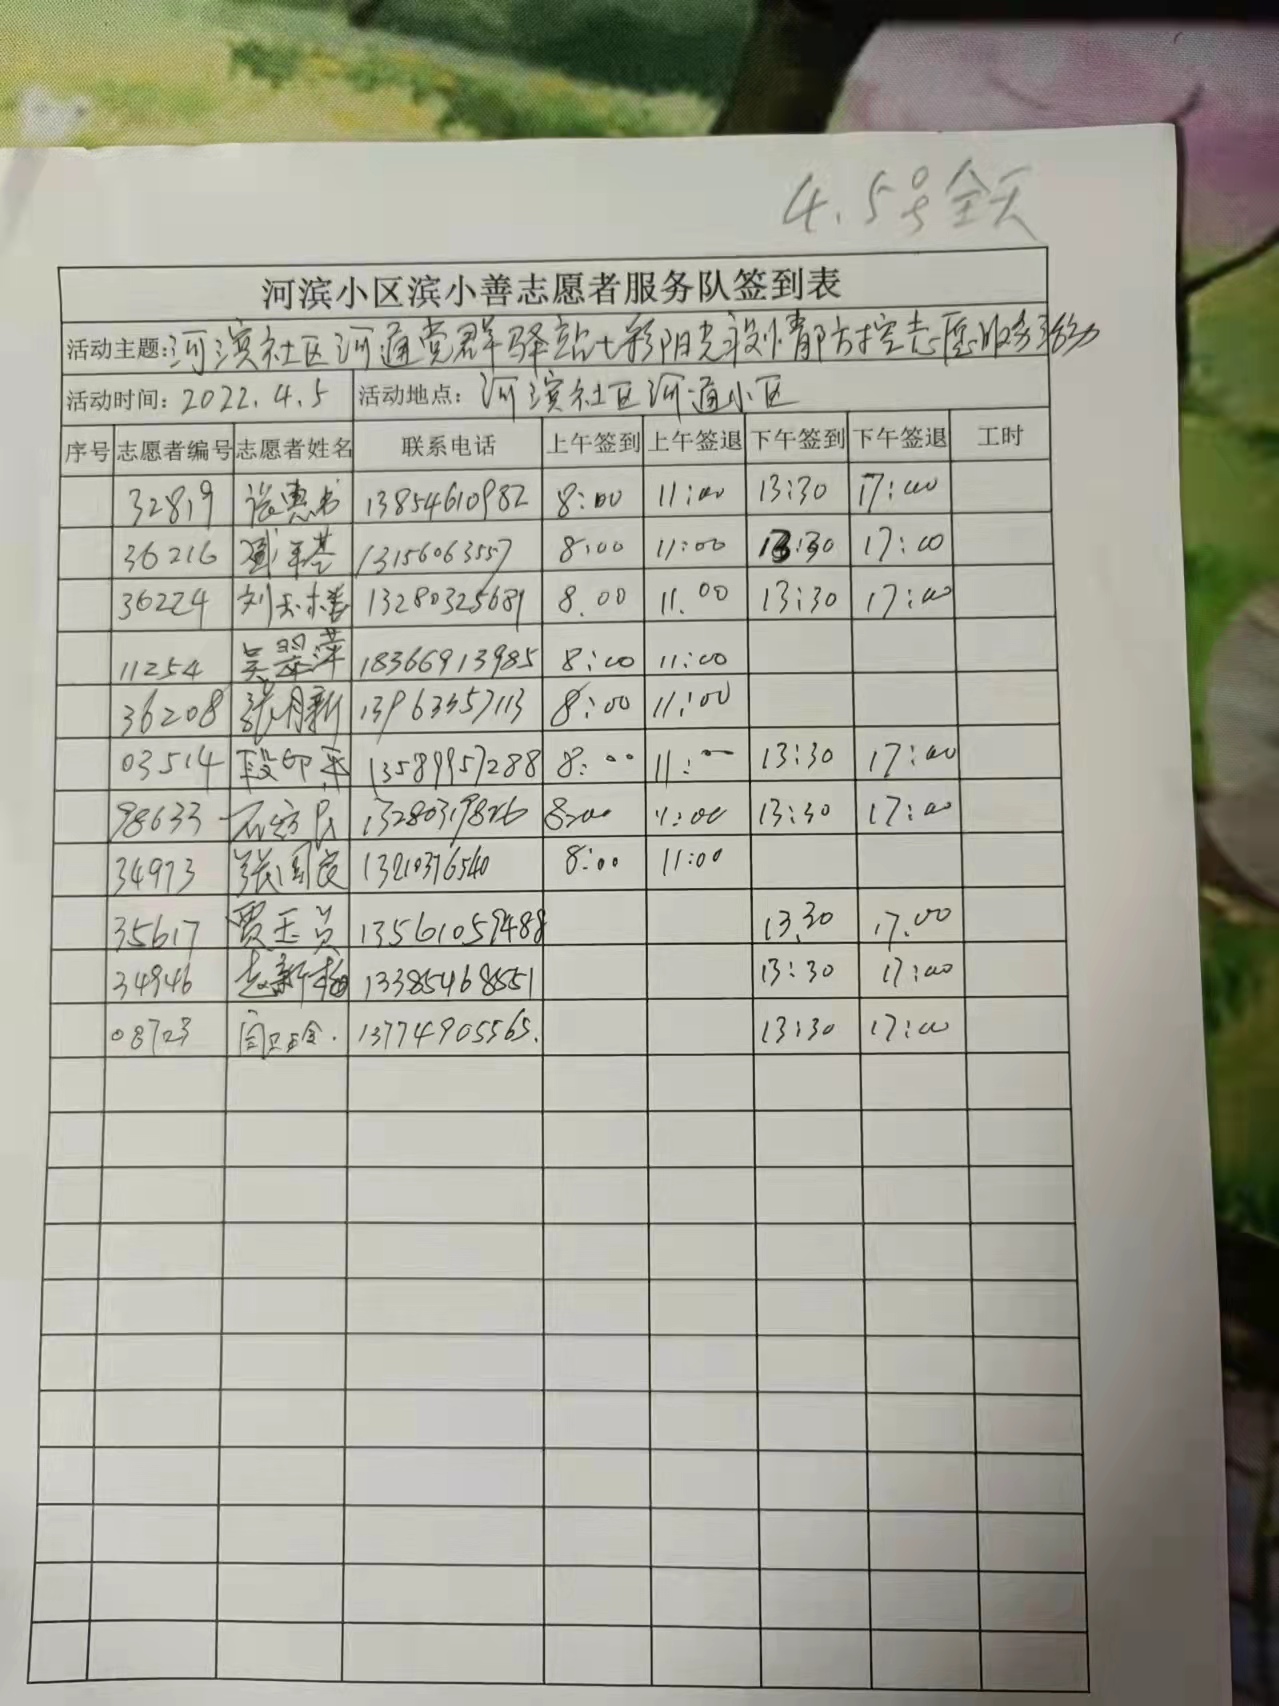 4.5号全天
河滨小区滨小善志愿者服务队签到表
活动主题:河滨社区河通党群驿站七彩阳光 情防控志愿服务活动
活动时间: 2022.4.5 活动地点: 河滨社区河通小区
序号 志愿者编号 志愿者姓名 联系电话 上午签到 上午签退 下午签到 下午签退 工时
32819 13854610982 8:00 11:00 13:30 17:00
36216 13156063557 8:00 11:00 13:30 17:00
36224 刘 13280325681 8.00 11.00 13:30 17:00
11254 吴翠萍 18366913985 8:00 11:00
36208 张月新 13963357113 8:00 11:00
03514 段 13589957288 8:00 11:00 13:30 17:00
98633 石 13280319826 8:00 11:00 13:30 17:00
34973 张国 13210376540 8:00 11:00
35617 贾玉 13561059488 13.30 17.00
34946 赵新梅 13385468551 13:30 17:00
08723 13774905565. 13:30 17:00